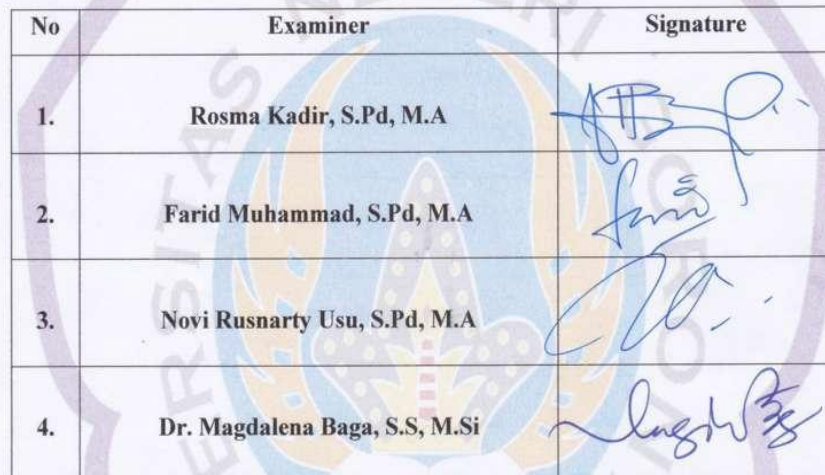 No Examiner Signature
1. Rosma Kadir, S.Pd, M.A
2. Farid Muhammad, S.Pd, M.A
3. Novi Rusnarty Usu, S.Pd, M.A
4. Dr. Magdalena Baga, S.S, M.Si